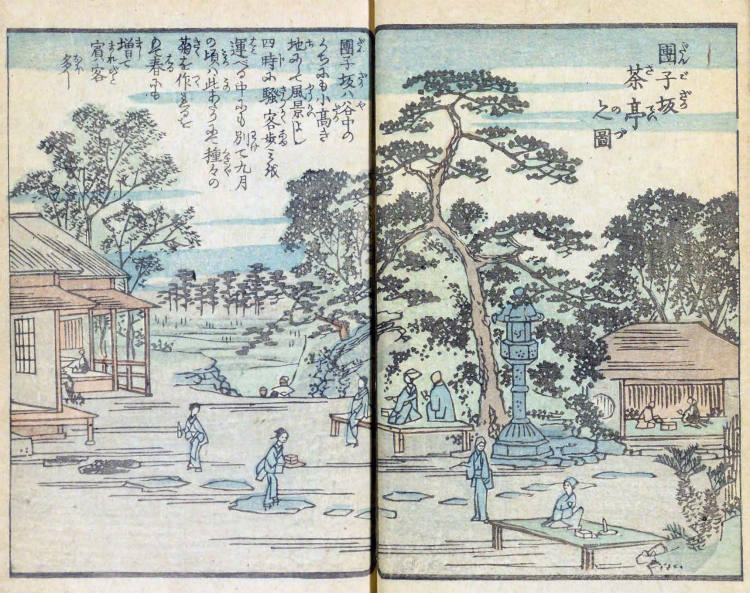 團子坂
茶亭
之圖
團子坂ハ谷中の
うちにも小高き
地にして風景よし
四時に騒客歩ミを
運べる中にも別て九月
の頃ハ此あたりにて種々の
菊を作る
春にも
増て
賓客
多し